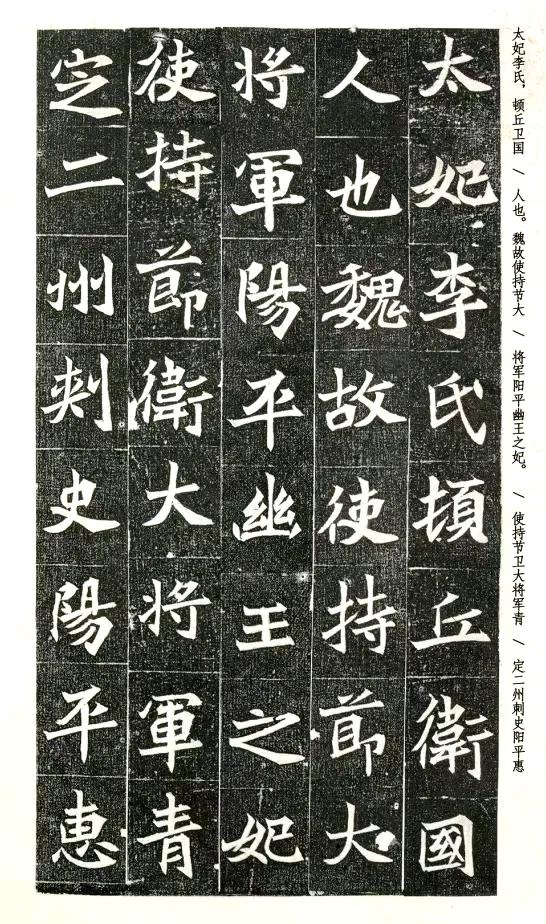 太妃李氏，顿丘卫国 \ 人也。魏故使持节大 \ 将军阳平幽王之妃。 \ 使持节卫大将军青 \ 定二州刺史阳平惠
太妃李氏頓丘衛國
人也魏故使持節大
将軍陽平幽王之妃
使持節衛大将軍青
定二州刾史陽平惠